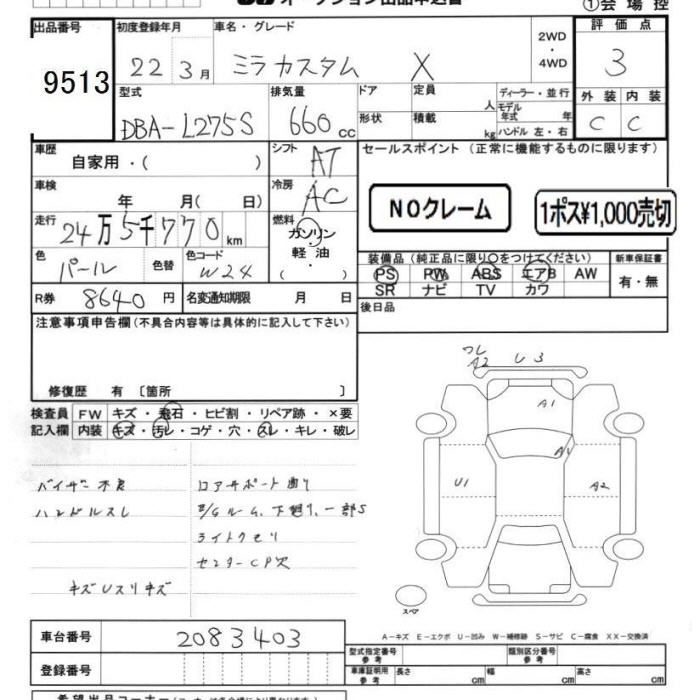 出品番号 初度登録年月 車名・グレード 2WD・4WD 評価点
9513 22 3月 ミラカスタム X 3
型式 排気量 ドア 定員 人 ディーラー・並行 外装 内装
DBA-L275S 660cc 形状 積載 kg モデル年式 年 ハンドル 左・右 C C
車歴 自家用・( ) シフト AT セールスポイント(正常に機能するものに限ります)
車検 年 月( 日) 冷房 AC NOクレーム 1ポス¥1,000売切
走行 24万5千770km 燃料 ガソリン・軽油・( )
色 パール 色替 色コード W24 装備品(純正品に限り○をつけてください) 新車保証書
PS PW ABS エアB AW 有・無
SR ナビ TV カワ
R券 8640円 名変通知期限 月 日 後日品
注意事項申告欄(不具合内容等は具体的に記入して下さい)
修復歴 有〔箇所 〕
検査員 FW キズ・飛石・ヒビ割・リペア跡・×要
記入欄 内装 キズ・汚レ・コゲ・穴・スレ・キレ・破レ
A2 U3
A1
U1 A2
バイザー不良
ハンドルスレ
ライトクモリ
センターCP欠
スペア
A-キズ E-エクボ U-凹み W-補修跡 S-サビ C-腐食 XX-交換済
車台番号 2083403
型式指定番号 参考 類別区分番号 参考
登録番号 車庫証明用 参考 長さ cm 幅 cm 高さ cm